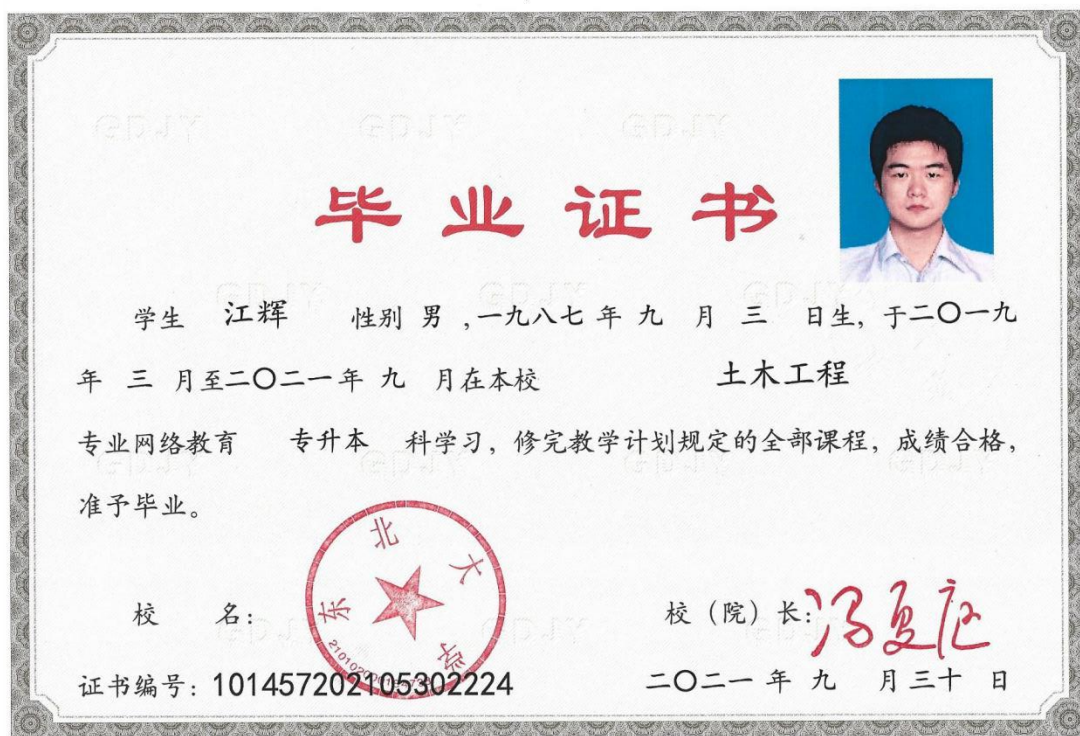 毕业证书
学生 江辉 性别 男 ,一九八七 年 九 月 三 日生, 于二〇一九
年 三 月至二〇二一年 九 月在本校 土木工程
专业网络教育 专升本 科学习, 修完教学计划规定的全部课程, 成绩合格,
准予毕业。
东北大学
校 名: 校（院）长: 冯夏庭
证书编号: 101457202105302224 二〇二一 年 九 月三十 日